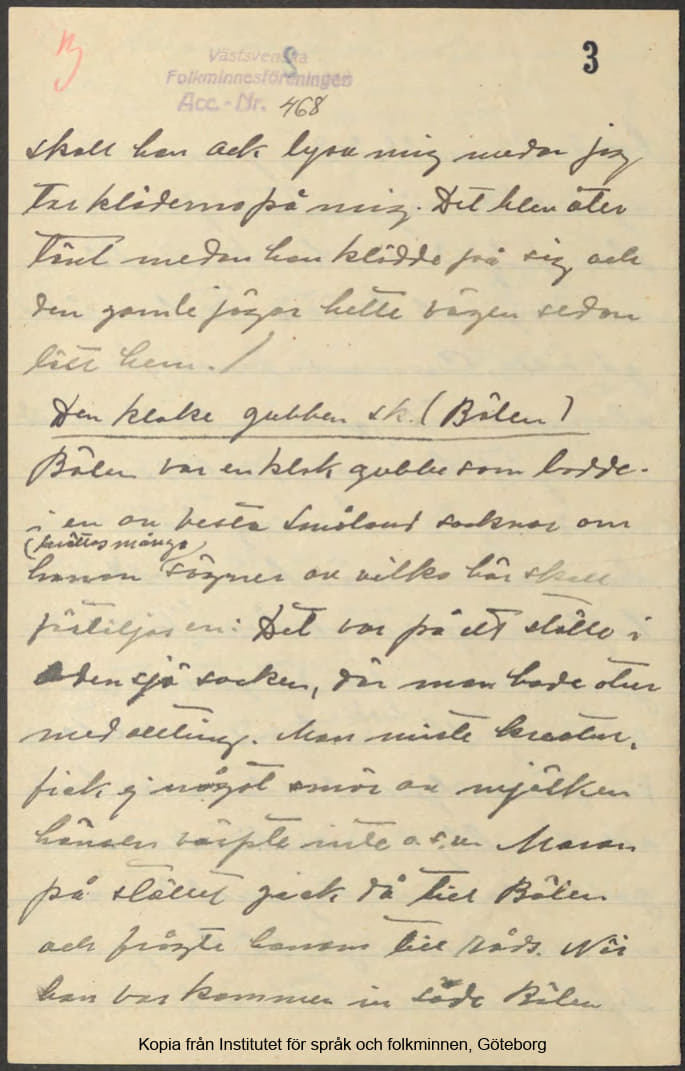 3
Västsvenska
Folkminnesföreningen
Acc. - Nr. 468
skall han ack lysa mig medan jag
tar kläderna på mig. Det blev åter
tänt medan han klädde på sig och
den gamle jägar hette vägen sedan
lätt hem. /
Den kloke gubben sk. (Bölen)
Bölen var en klok gubbe som bodde
i en av västa Småland socknar om
(berättas många)
honom sägner av vilka här skall
förtäljas en: Det var på ett ställe i
Odensjö socken, där man hade otur
med allting. Man miste kreatur,
fick ej något smör av mjölken
hönsen värpte inte o.s.v. Moran
på stället gick då till Bölen
och frågte honom till råds. När
han var kommen in sade Bölen
Kopia från Institutet för språk och folkminnen, Göteborg